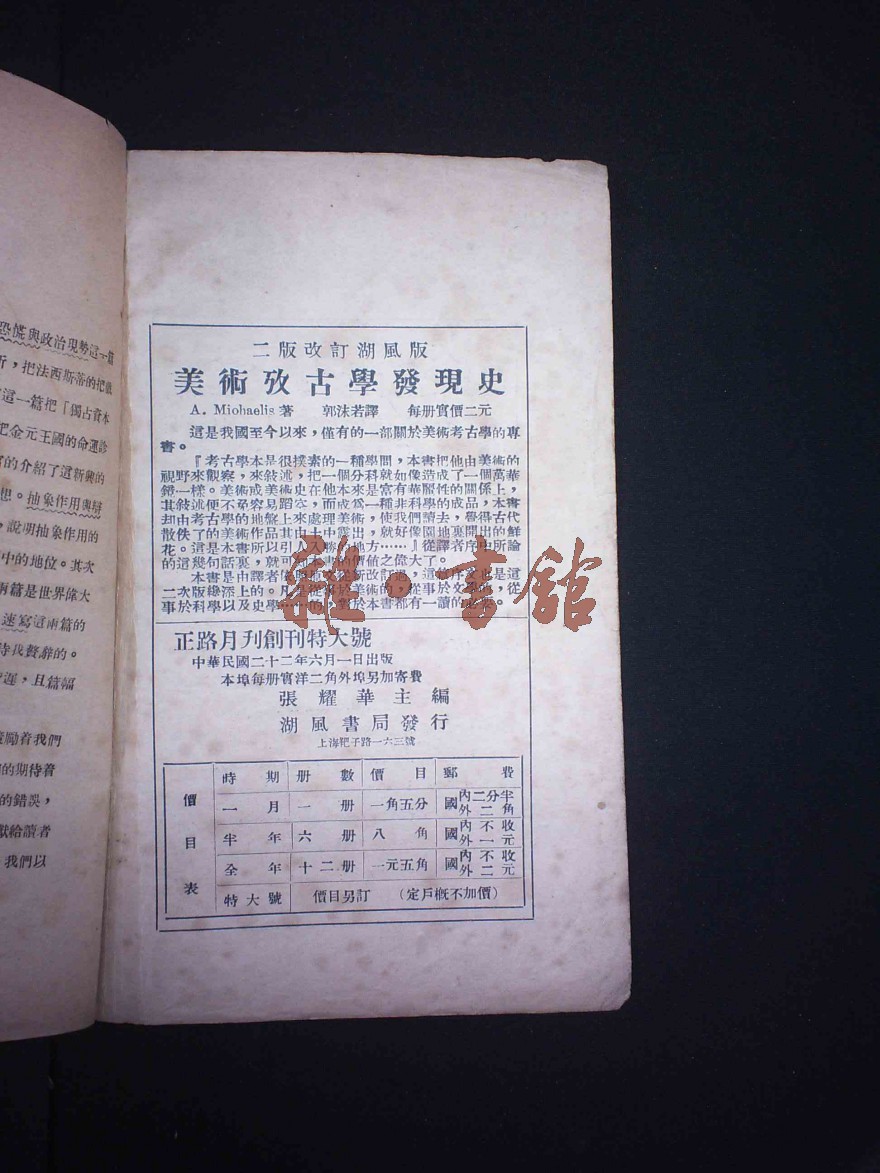 恐慌與政治現勢這一篇
，把法西斯蒂的把戲
這一篇把「獨占資本
把金元王國的命運診
的介紹了這新興的
想。抽象作用與辯
，說明抽象作用的
中的地位。其次
兩篇是世界偉大
速寫這兩篇的
待我贅辭的。
遲，且篇幅
勵着我們
的期待着
的錯誤，
獻給讀者
我們以
二版改訂湖風版
美術攷古學發現史
A. Miohaelis 著 郭沫若譯 每册實價二元
這是我國至今以來，僅有的一部關於美術考古學的專
書。
『考古學本是很撲素的一種學問，本書把他由美術的
視野來觀察，來敘述，把一個分科就如像造成了一個萬華
鏡一樣。美術或美術史在他本來是富有華豔性的關係上，
其敘述便不免容易蹈空，而成爲一種非科學的成品，本書
却由考古學的地盤上來處理美術，使我們讀去，覺得古代
散佚了的美術作品其由土中露出，就好像園地裏開出的鮮
花。這是本書所以引人入勝的地方……』從譯者序中所論
的這幾句話裏，就可知本書的價值之偉大了。
本書是由譯者改訂過，這序文也是這
二次版纔添上的。凡是從事於美術的，從事於文學的，從
事於科學以及史學……的，對於本書都有一讀的必要。
雜·書館
正路月刋創刊特大號
中華民國二十二年六月一日出版
本埠每册實洋二角外埠另加寄費
張耀華主編
湖風書局發行
上海靶子路一六三號
價目表
時期 册數 價目 郵費
一月 一册 一角五分 國內二分半 國外二角
半年 六册 八角 國內不收 國外一元
全年 十二册 一元五角 國內不收 國外二元
特大號 價目另訂 (定戶概不加價)